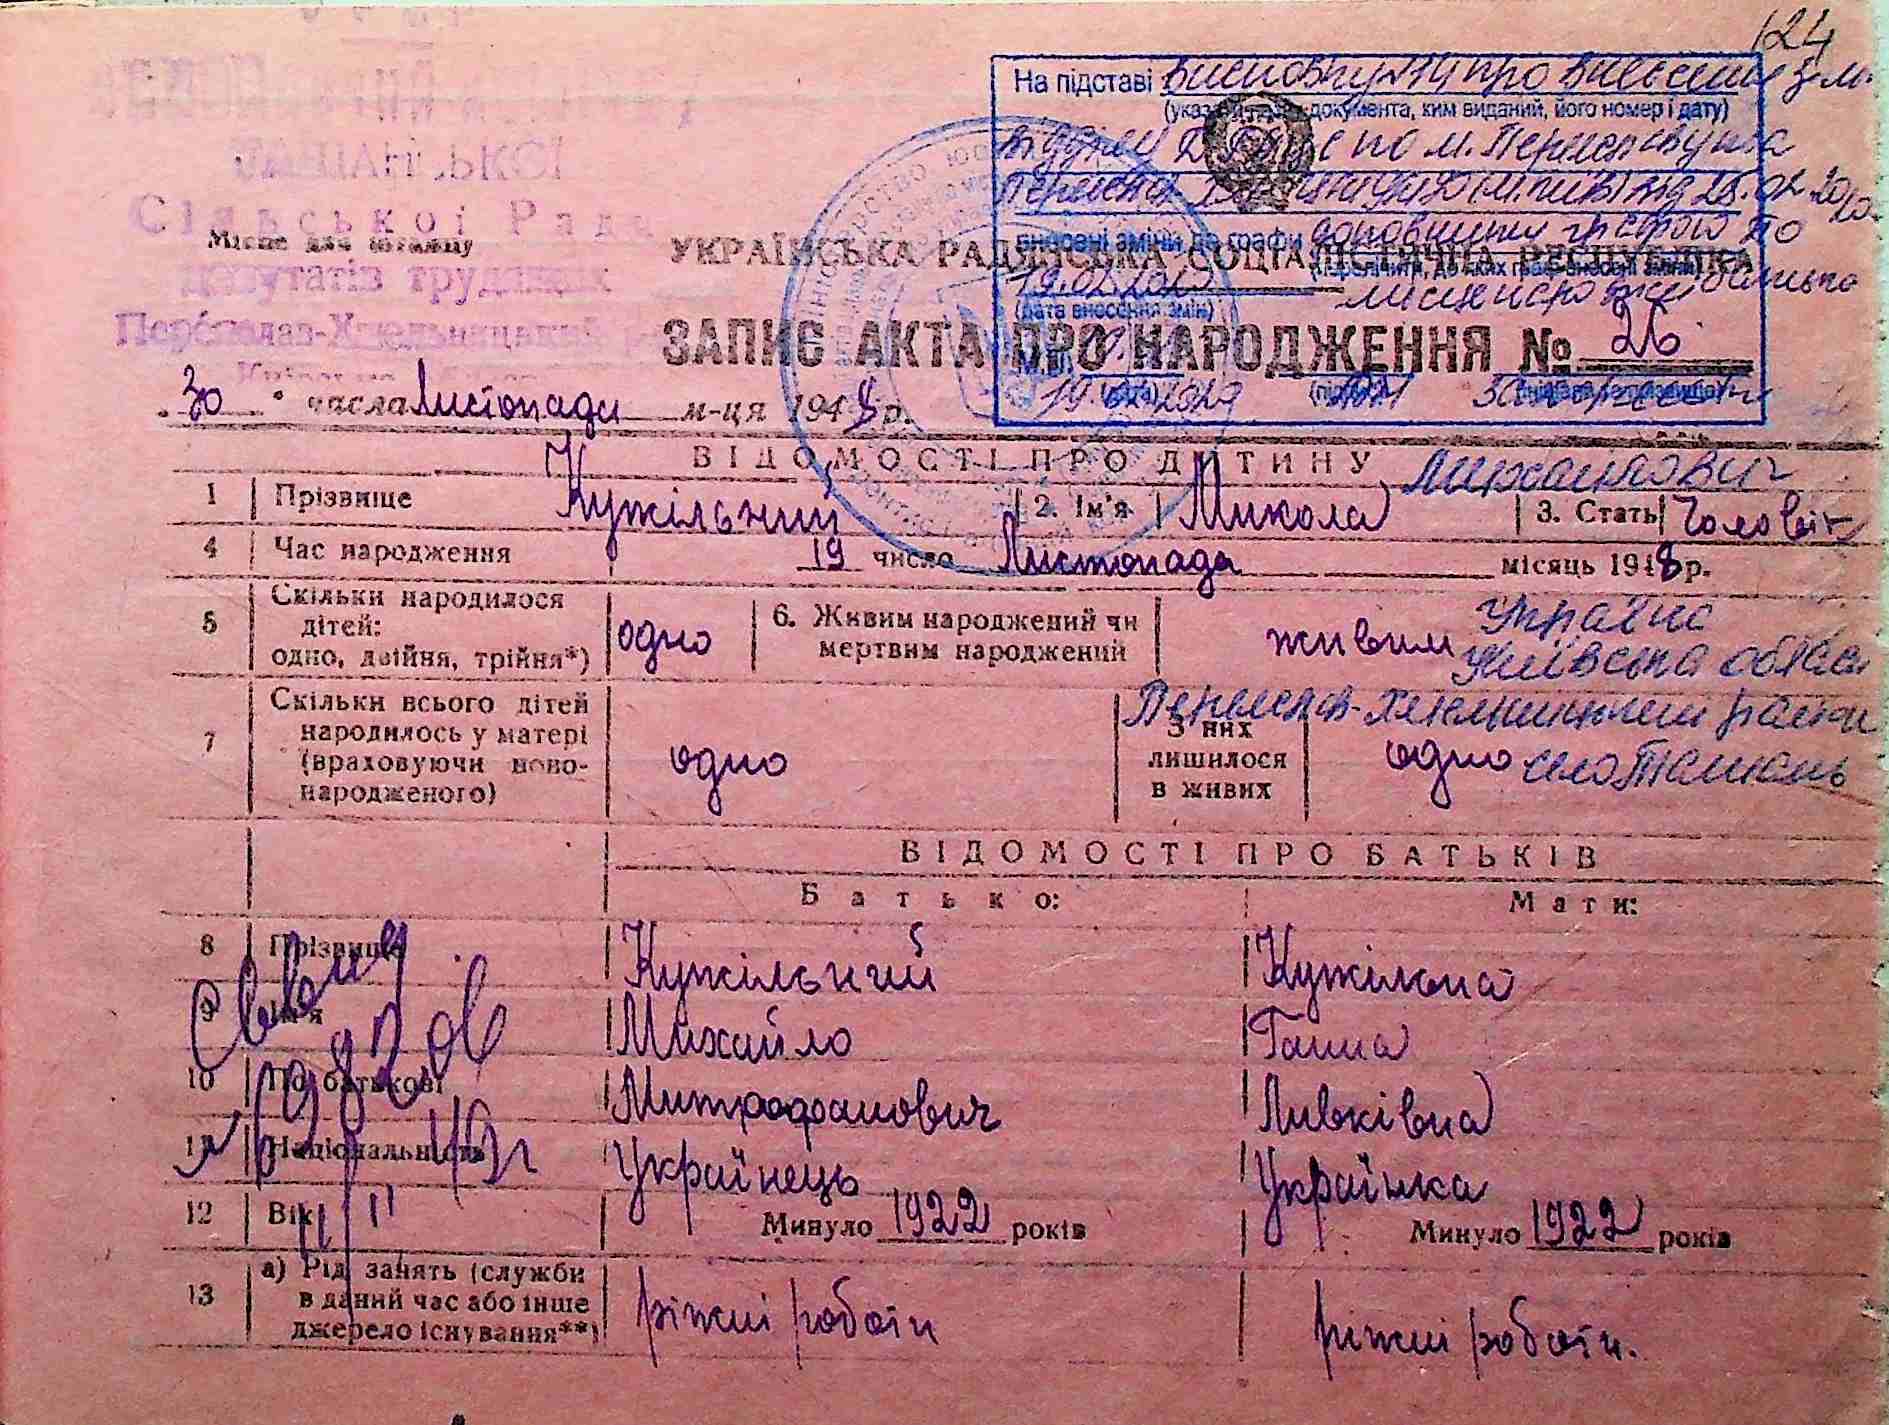 124
На підставі Висновку №14 про внесення змін
(указати назву документа, ким виданий, його номер і дату)
відділу ДРАЦС по м. Переяславу та
Переяслав-Хмельницькому
внесені зміни до графи доповнити графою по батькові
(перелічити, до яких граф внесені зміни)
19.02.2020 місце народж
(дата внесення змін)
19.02.2020
(підпис)
ТАШАНСЬКОЇ
Сільської Ради
депутатів трудящих
Переяслав-Хмельницький
Місце для штампу
УКРАЇНСЬКА РАДЯНСЬКА СОЦІАЛІСТИЧНА РЕСПУБЛІКА
ЗАПИС АКТА ПРО НАРОДЖЕННЯ № 26
"30" числа Листопада м-ця 1948 р.
ВІДОМОСТІ ПРО ДИТИНУ Михайлович
1 Прізвище Кужільний 2. Ім'я Микола 3. Стать Чоловіч
4 Час народження 19 число Листопада місяць 1948 р.
5 Скільки народилося дітей: одно, двійня, трійня*) одно 6. Живим народжений чи мертвим народжений живим
Україна
Київська област
Переяслав-Хмельницький район
село Ташань
7 Скільки всього дітей народилось у матері (враховуючи ново-народженого) одно З них лишилося в живих одно
ВІДОМОСТІ ПРО БАТЬКІВ
Батько: Мати:
8 Прізвище Кужільний Кужільна
9 Ім'я Михайло Ганна
10 По батькові Митрофанович Левківна
11 Національність Українець Українка
12 Вік Минуло 1922 років Минуло 1922 років
13 а) Рід занять (служби в даний час або інше джерело існування**) ріжні роботи ріжні роботи.